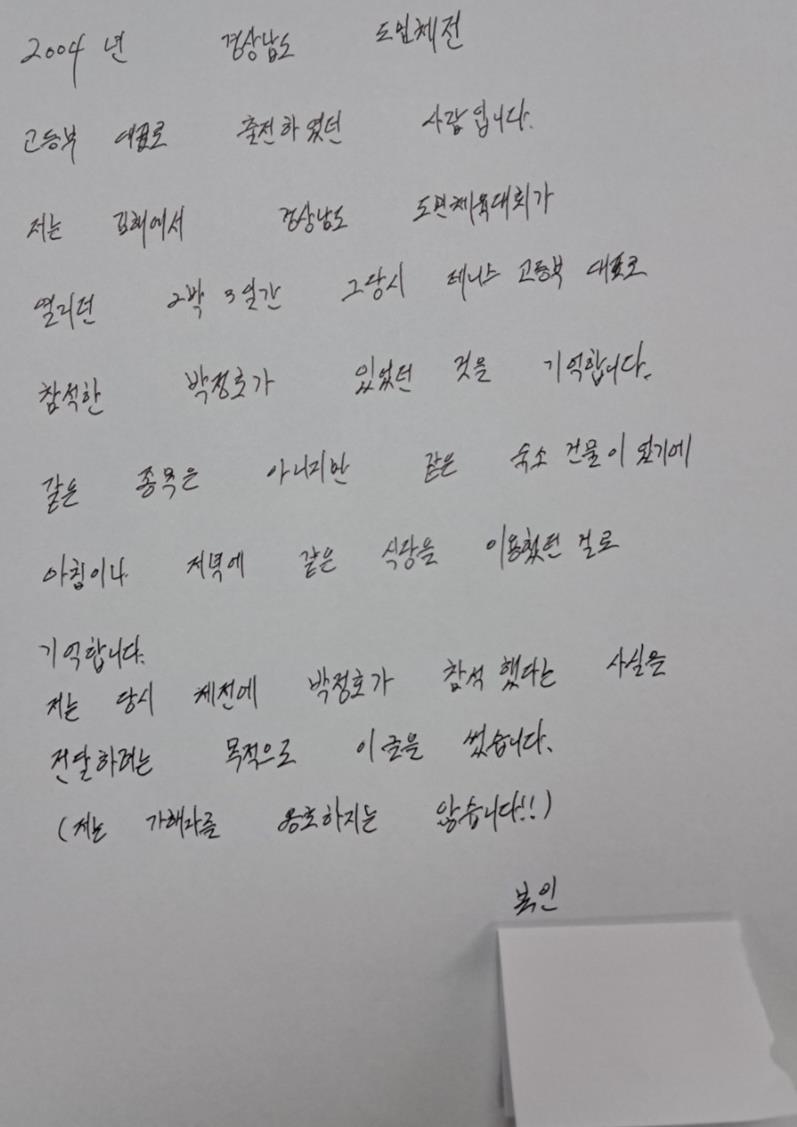 2004년 경상남도 도민체전
고등부 대표로 출전하였던 사람입니다.
저는 김해에서 경상남도 도민체육대회가
열리던 2박 3일간 그당시 테니스 고등부 대표로
참석한 박정호가 있었던 것을 기억합니다.
같은 종목은 아니지만 같은 숙소 건물이 있기에
아침이나 저녁에 같은 식당을 이용했던 걸로
기억합니다.
저는 당시 체전에 박정호가 참석 했다는 사실을
전달하려는 목적으로 이 글을 썼습니다.
(저는 가해자를 옹호하지는 않습니다!!)
본인